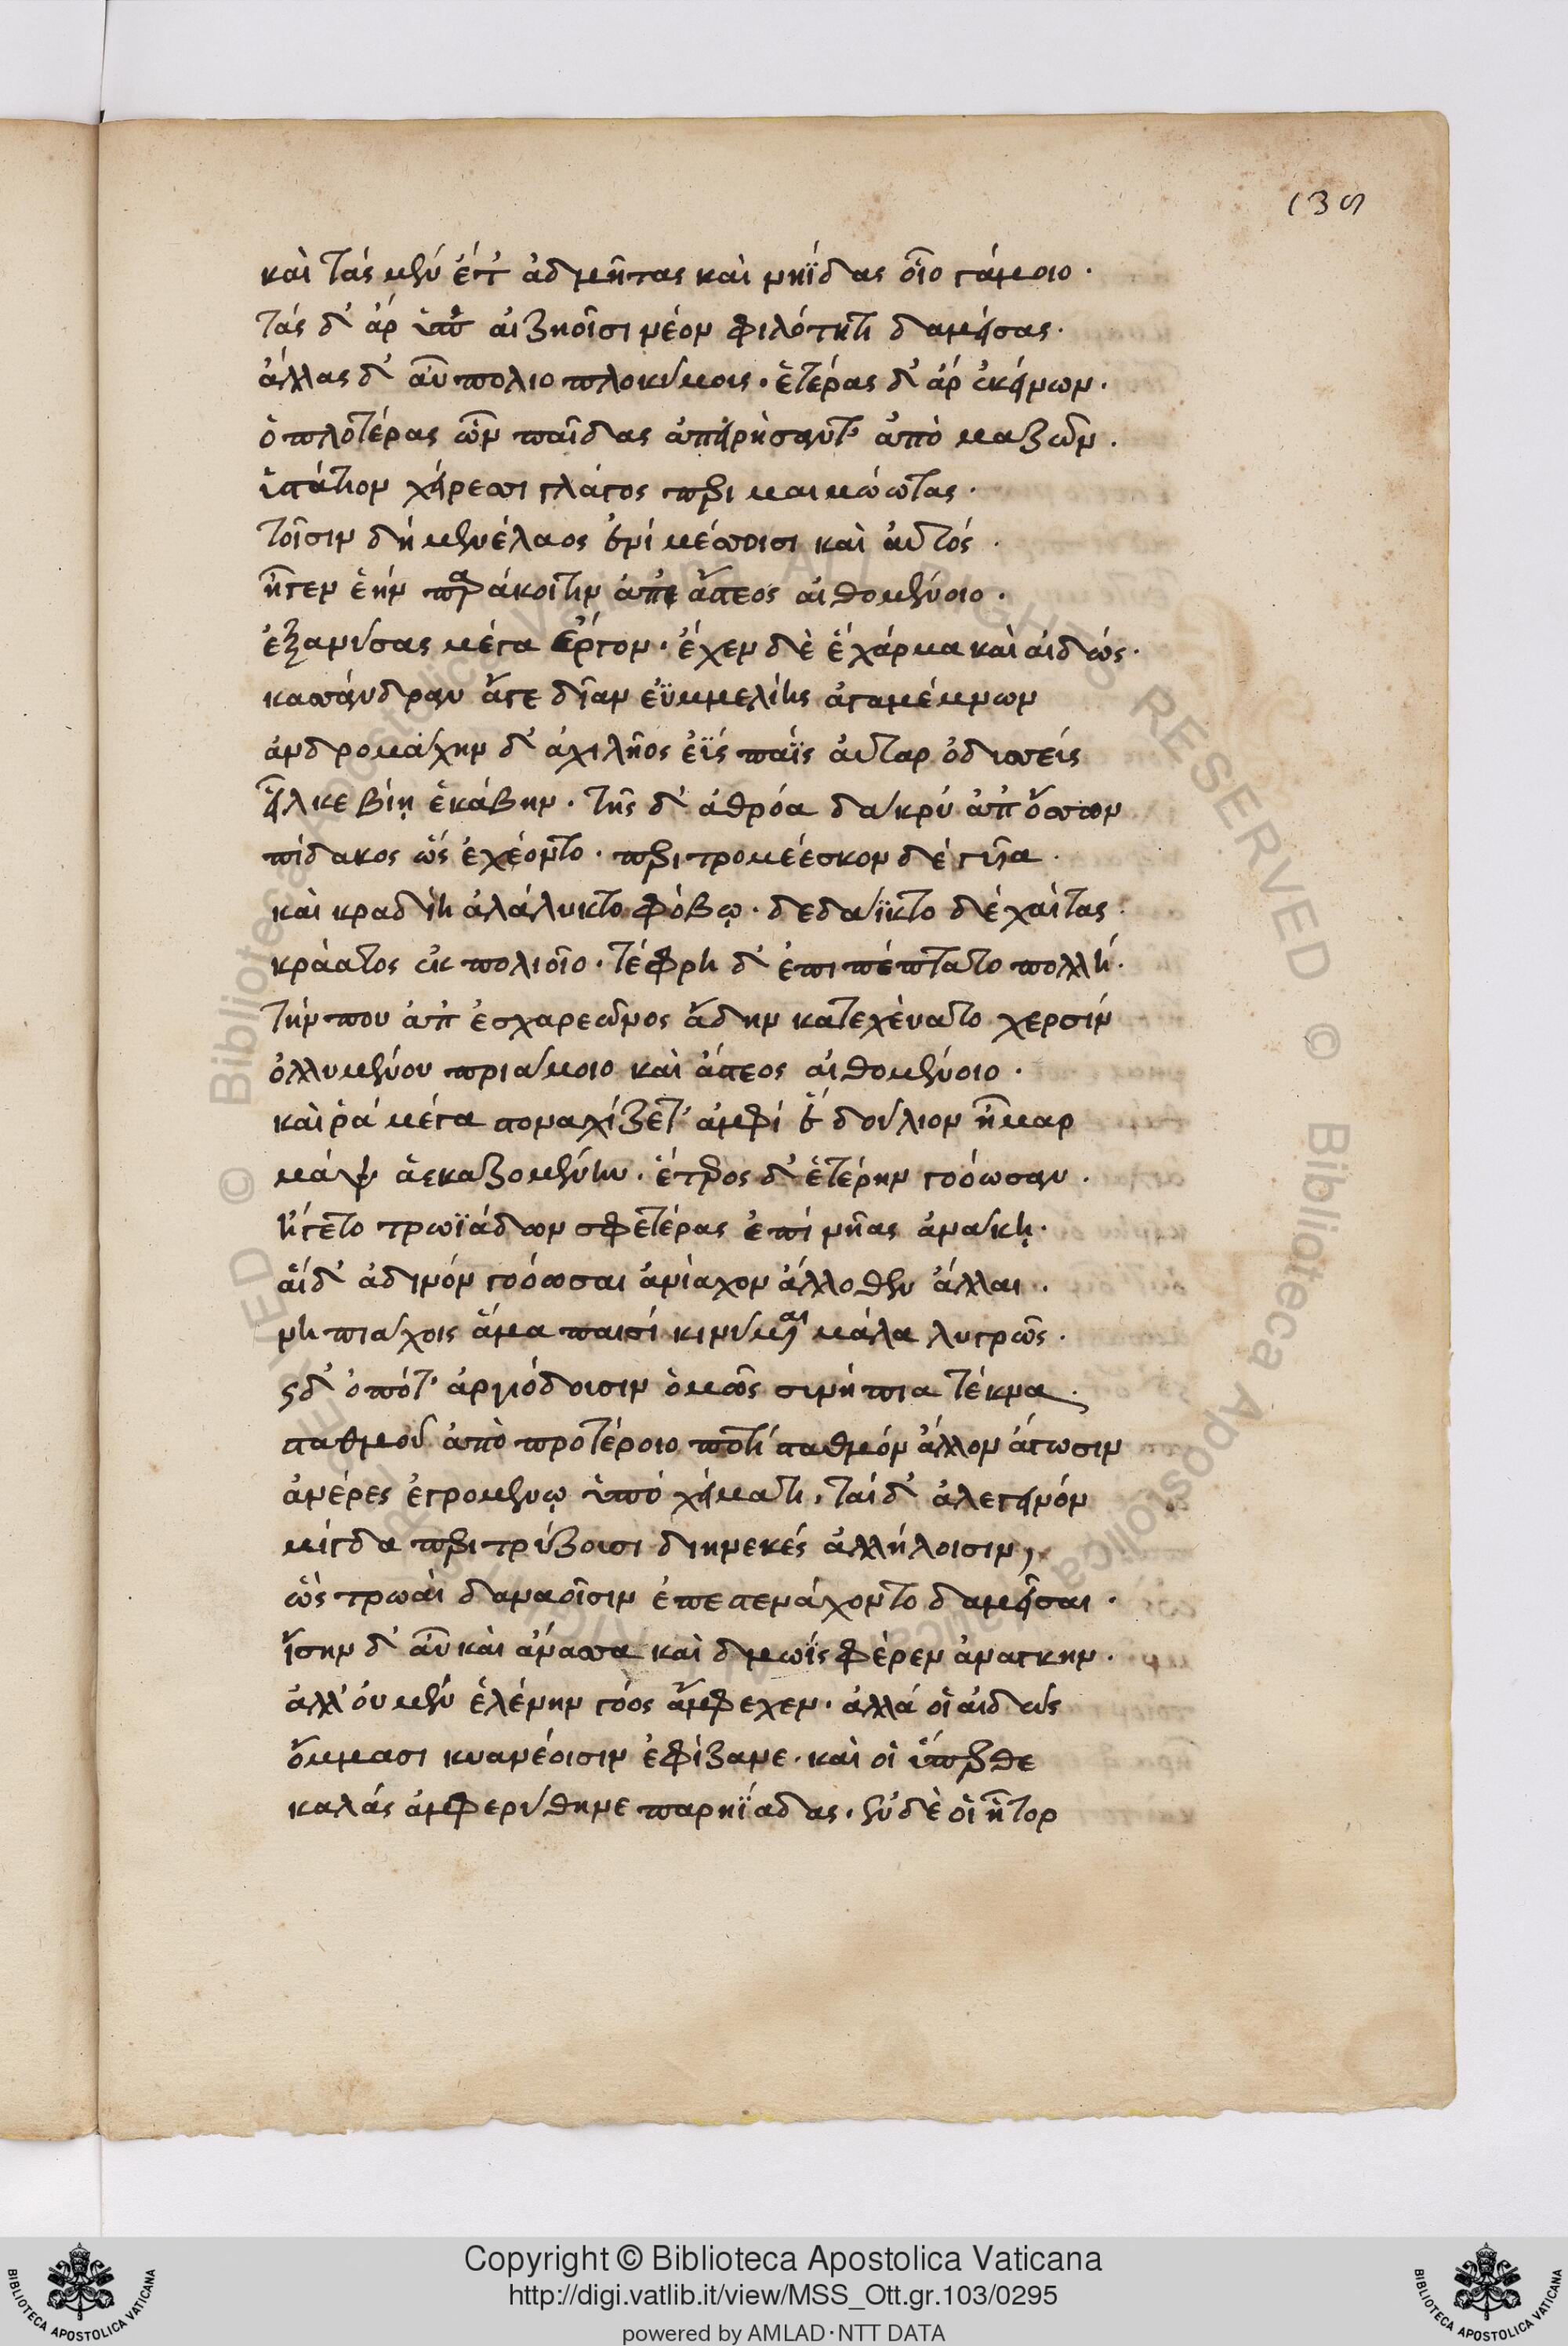 139
καὶ τάς μὲν ἔτ' ἀδμῆτας καὶ νηΐδας οἷο γάμοιο.
τάς δ' ἄρ ὑπ' αἰζηοῖσι νέον φιλότητι δαμείσας.
ἄλλας δ' αὖ πολιοπλοκάμοις. ἑτέρας δ' ἄρ ἐκείνων.
ὁπλοτέρας ὧν παῖδας ἀπειρύσαντ' ἀπὸ μαζῶν.
ὑστάτιον χείλεσσι γλάγος περιμαιμώωντας.
τοῖσιν δή μενέλαος ἐνί μέσσοισι καὶ αὐτός.
ἦγεν ἑήν παράκοιτιν ἀπ' ἄστεος αἰθομένοιο.
ἐξανύσας μέγα ἔργον. ἔχεν δὲ ἑ χάρμα καὶ αἰδώς.
κασσάνδραν ἄγε δῖαν ἐϋμμελίης ἀγαμέμνων
ἀνδρομάχην δ' ἀχιλῆος ἐΰς πάϊς αὐτάρ ὀδυσσεύς
εἷλκε βίῃ ἑκάβην. τῆς δ' ἀθρόα δάκρυ ἀπ' ὄσσων
πίδακος ὥς ἐχέοντο. περιτρομέεσκον δέ γυῖα.
καὶ κραδίη ἀλάλυκτο φόβῳ. δεδάϊκτο δέ χαίτας
κράατος ἐκ πολιοῖο. τέφρη δ' ἐπιπέπτατο πολλή.
τήν που ἀπ' ἐσχαρεῶνος ἄδην κατεχεύατο χερσίν
ὀλλυμένου πριάμοιο καὶ ἄστεος αἰθομένοιο.
καί ῥά μέγα στοναχίζετ' ἀμφί ἑ δούλιον ἦμαρ
μάψ ἀεκαζομένην. ἕτερος δ' ἑτέρην γοόωσαν.
ἤγετο τρωϊάδων σφετέρας ἐπί νῆας ἀνάγκῃ.
αἵ δ' ἀδινόν γοόωσαι ἀνίαχον ἄλλοθεν ἄλλαι.
νηπιάχοις ἅμα παισί κινύμεναι μάλα λυγρῶς.
ὡς δ' ὁπότ' ἀργιόδουσιν ὁμῶς συσί νήπια τέκνα.
σταθμοῦ ἀπὸ προτέροιο ποτί σταθμόν ἄλλον ἄγωσιν
ἀνέρες ἐγρομένῳ ὑπό χείματι, ταί δ' ἀλεγεινόν
μίγδα περιτρύζουσι διηνεκές ἀλλήλοισιν,
ὥς τρωαί δαναοῖσιν ἐπεστενάχοντο δαμεῖσαι.
ἴσην δ' αὖ καὶ ἄνασσα καὶ δμωΐς φέρεν ἀνάγκην.
ἀλλ' οὐ μὲν ἑλένην γόος ἄμφεχεν. ἀλλά οἱ αἰδώς
ὄμμασι κυανέοισιν ἐφίζανε. καὶ οἱ ὕπερθε
καλάς ἀμφερύθηνε παρηϊάδας. ἐν δὲ οἱ ἦτορ
Copyright © Biblioteca Apostolica Vaticana
http://digi.vatlib.it/view/MSS_Ott.gr.103/0295
powered by AMLAD·NTT DATA
BIBLIOTECA APOSTOLICA VATICANA
BIBLIOTECA APOSTOLICA VATICANA